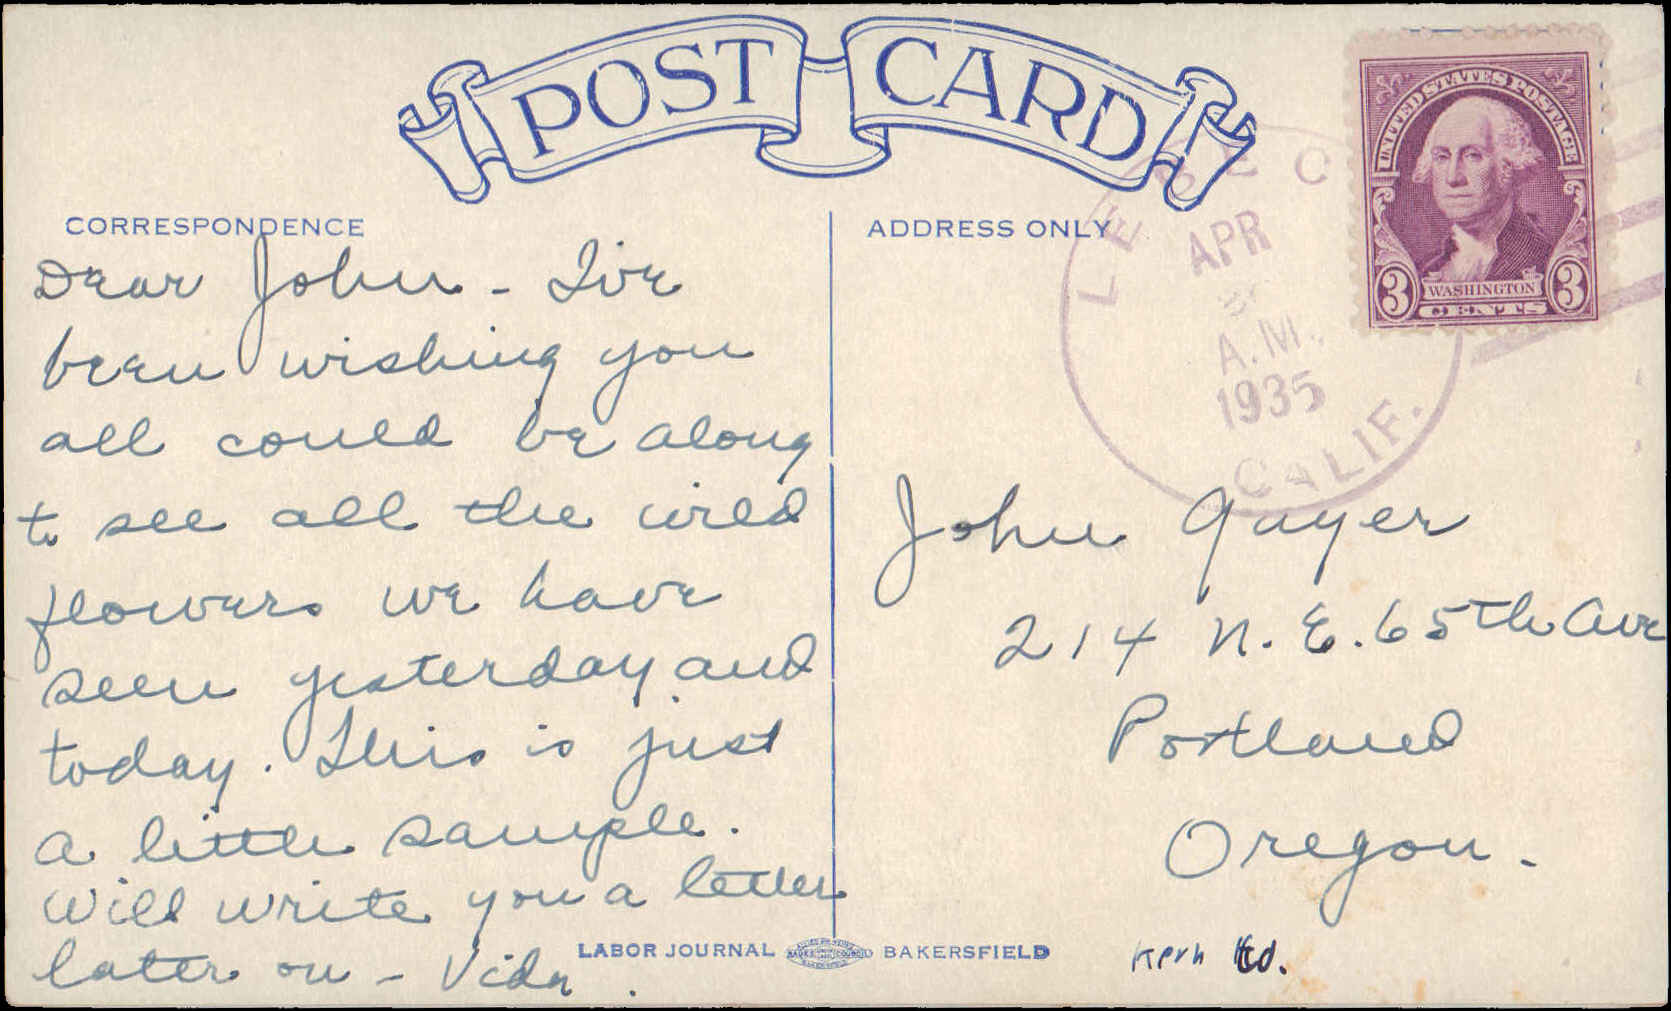 POST CARD
CORRESPONDENCE
Dear John - I've
been wishing you
all could be along
to see all the wild
flowers we have
seen yesterday and
today. This is just
a little sample.
Will write you a letter
later on - Vida.
ADDRESS ONLY
UNITED STATES POSTAGE
3 WASHINGTON 3
CENTS
LEBEC
APR
A.M.
1935
CALIF.
John Guyer
214 N.E. 65th Ave
Portland
Oregon.
LABOR JOURNAL BAKERSFIELD
Kern Co.